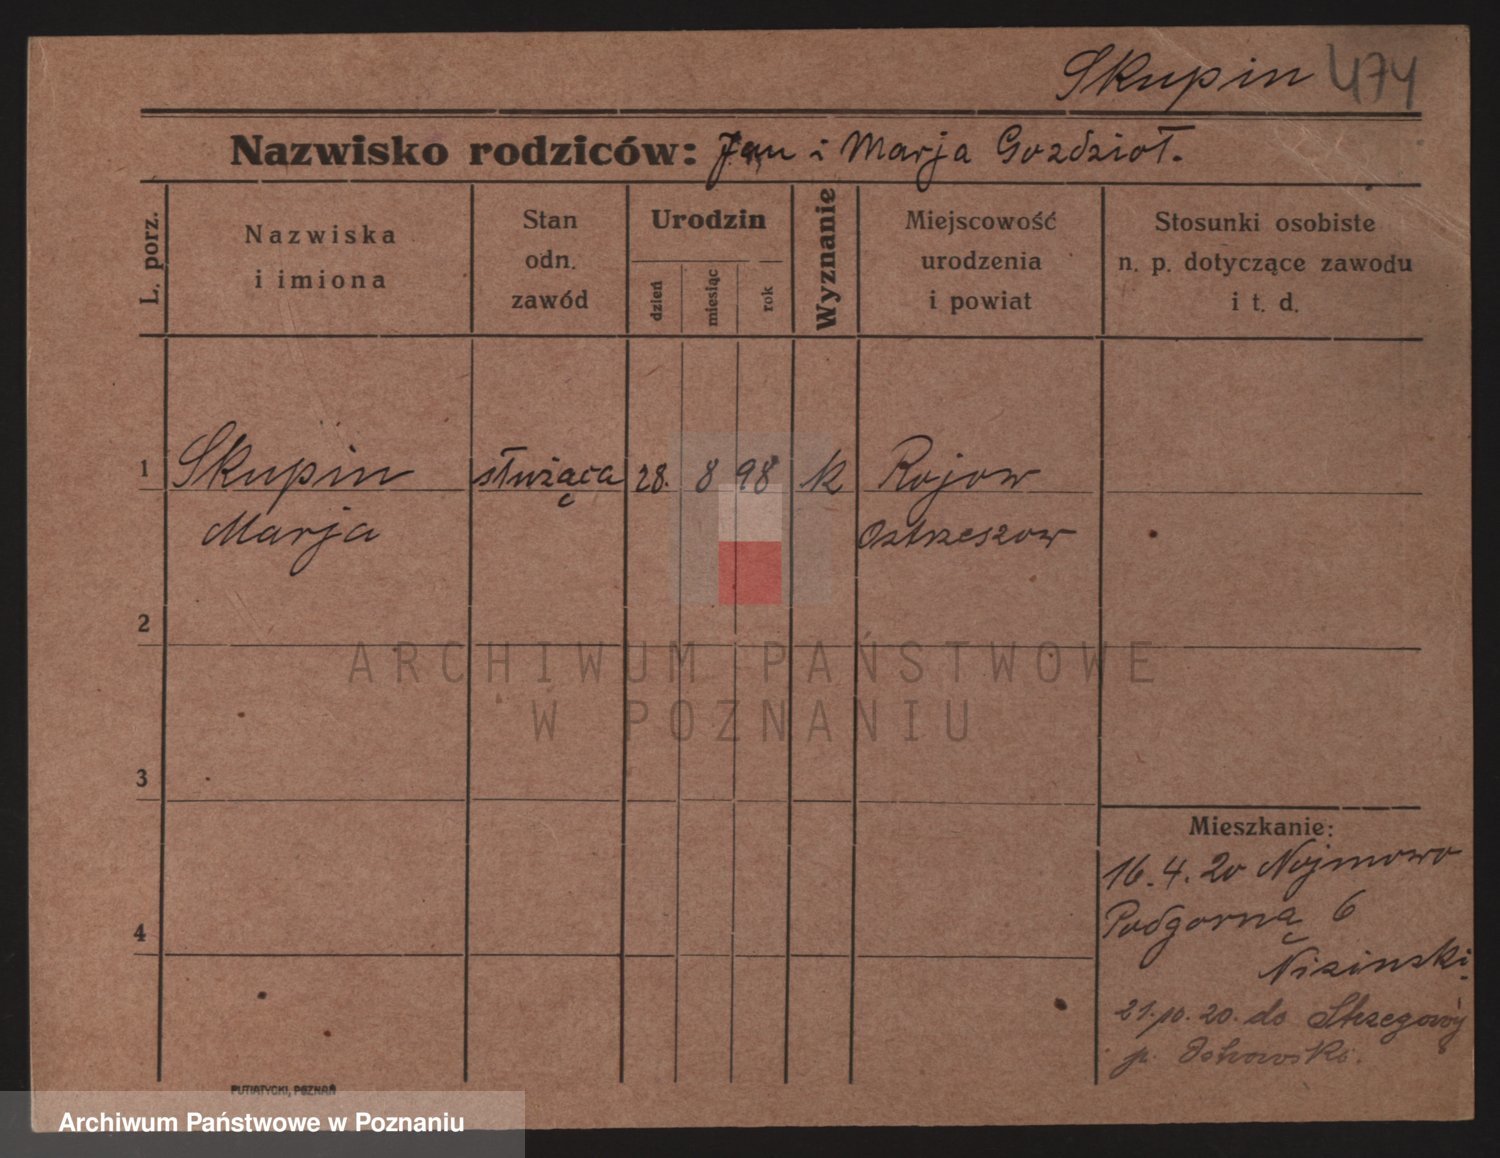 Skupin 474
Nazwisko rodziców: Jan i Marja Gozdzioł.
L. porz.
Nazwiska
i imiona
Stan
odn.
zawód
Urodzin
dzień
miesiąc
rok
Wyznanie
Miejscowość
urodzenia
i powiat
Stosunki osobiste
n. p. dotyczące zawodu
i t. d.
1 Skupin służąca 28. 8 98 k Rojow
Marja Ostrzeszow
2
3
4
Mieszkanie:
16.4.20 Nojmowo
Podgorną 6
Nizinski.
21.10.20. do Strzegowy
p. Ostrowsko.
PUTIATYCKI, POZNAŃ
ARCHIWUM PAŃSTWOWE
W POZNANIU
Archiwum Państwowe w Poznaniu